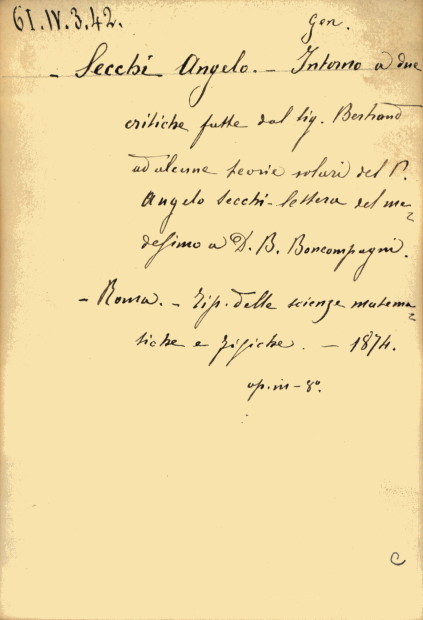 61.IV.3.42.
Gen.
- Secchi Angelo. - Intorno a due
critiche fatte dal sig. Bertrand
ad alcune teorie solari del P.
Angelo Secchi - lettera del me=
desimo a D. B. Boncompagni.
- Roma. - Tip. delle scienze matema=
tiche e fisiche. - 1874.
op. in - 8°.
C